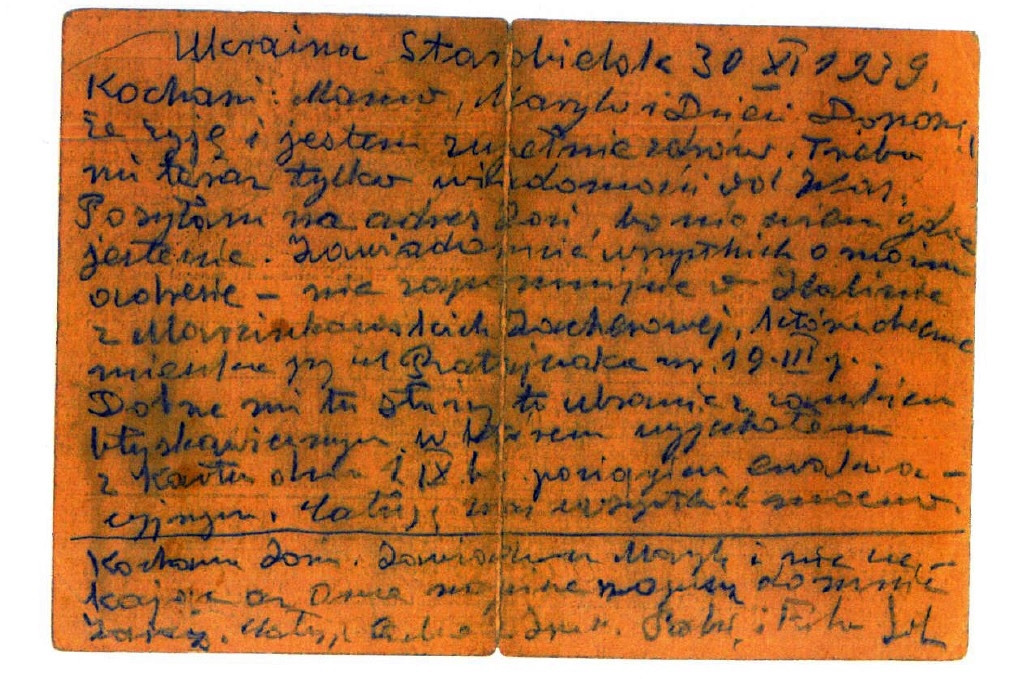 Ukraina Starobielsk 30 XI 1939.
Kochani: Mamo, Marylo i Dzieci Donoszę,
że żyję i jestem zupełnie zdrów. Trzeba
mi teraz tylko wiadomości od Was.
Posyłam na adres Zosi, bo nie wiem gdzie
jesteście. Zawiadomcie wszystkich o moim
adresie – nie zapominając o Halinie
z Marcinkowskich Zacherowej, która obecnie
mieszka przy ul nr. 19. III p.
Dobrze mi tu służy to ubranie z zamkiem
błyskawicznym, w którem wyjechałem
z dnia 1 IX br. pociągiem ewakua-
cyjnym. Całuję was wszystkich mocno.
Kochana Zosiu. Zawiadom Marylę i nie cze-
kając aż ona napisze napisz do mnie
zaraz. Całuję i